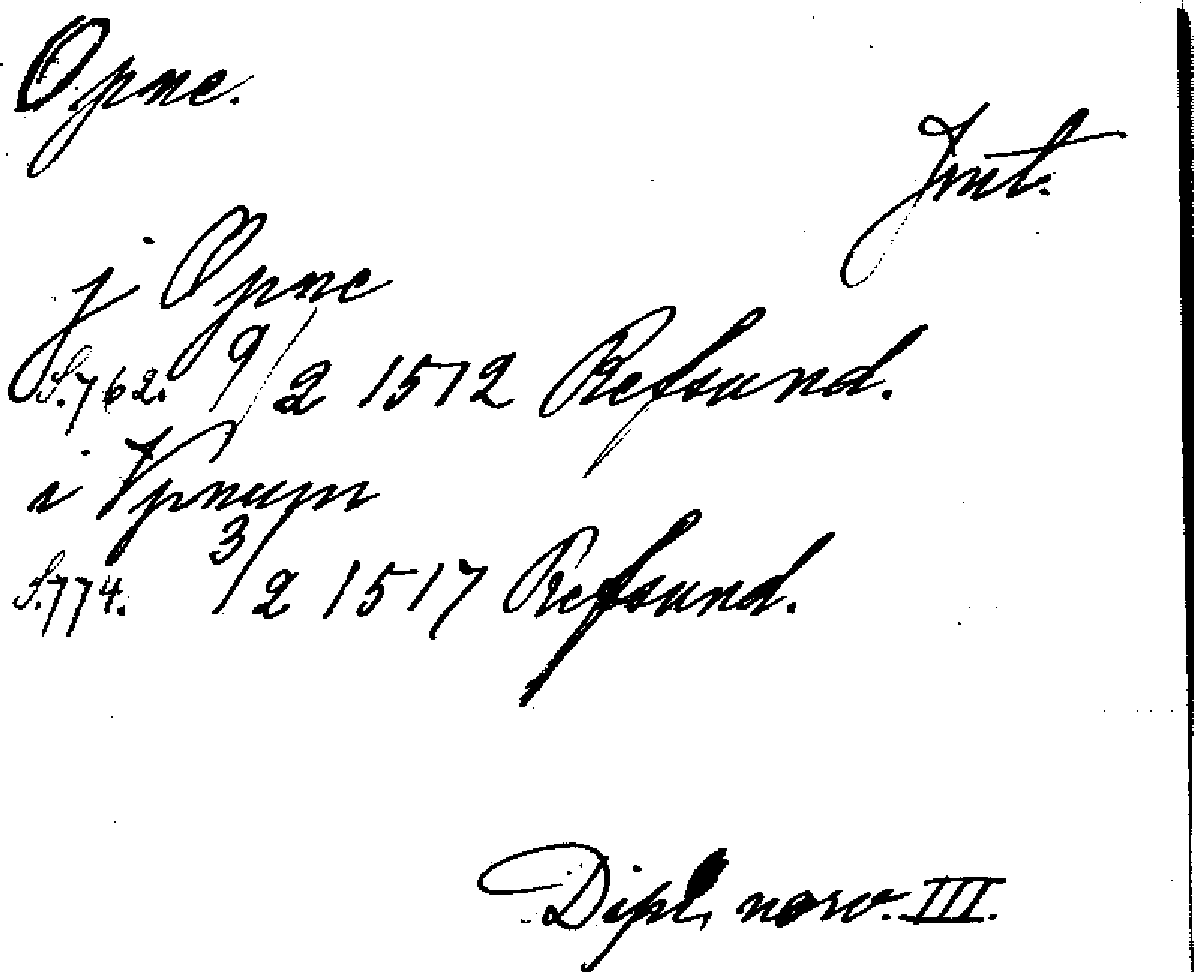 Opne.
Jmt.
j Opne
S. 762. 9/2 1512 Refsund.
i Vpnum
S. 774. 3/2 1517 Refsund.
Dipl. norv. III.